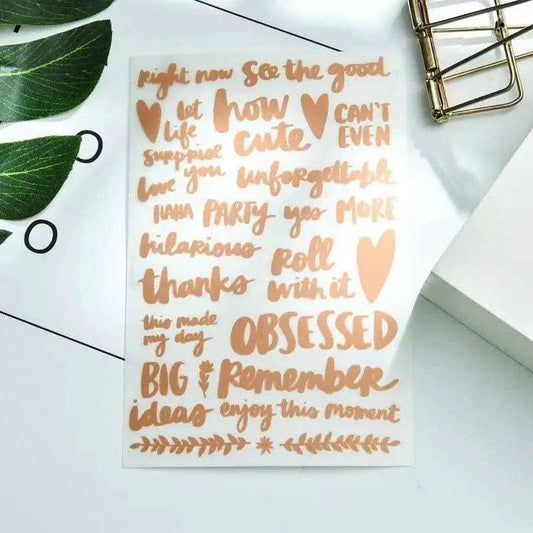 Right now see the good
let life surprise you
how cute
CAN'T EVEN
love you unforgettable
HAHA PARTY yes MORE
hilarious
Roll with it
thanks
this made my day
OBSESSED
BIG Remember
ideas enjoy this moment